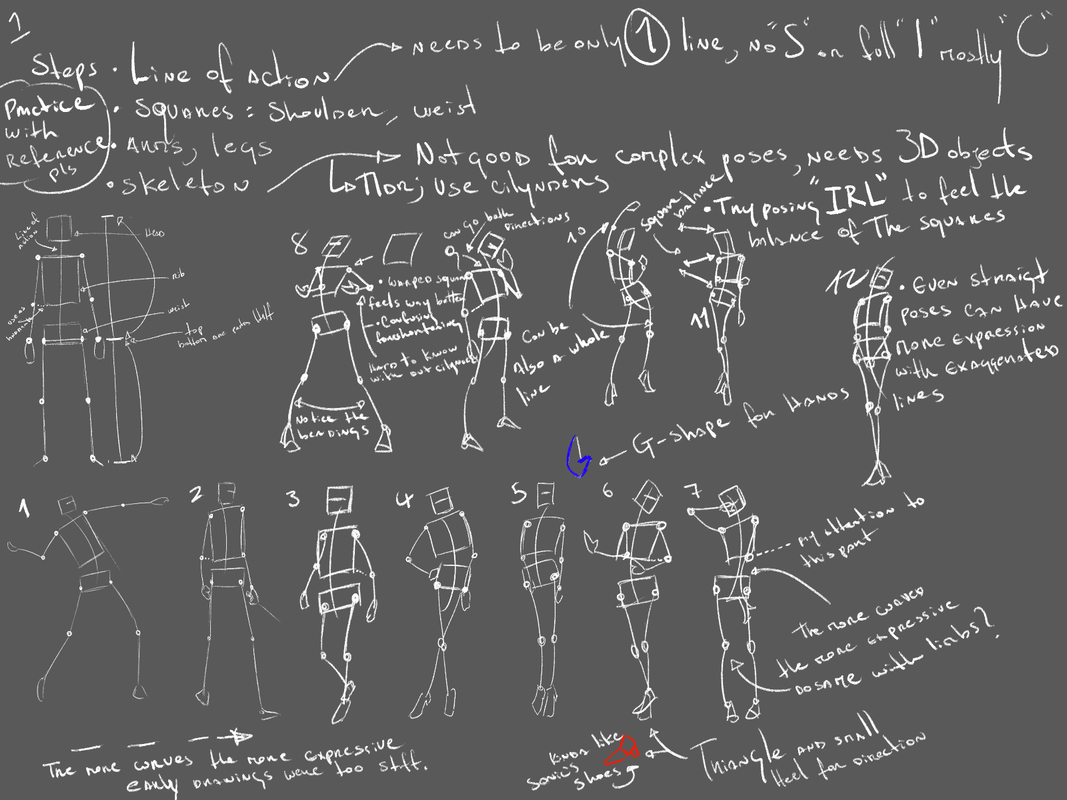 1
Steps • Line of Action → needs to be only 1 line, no "S" or full "I" mostly "C"
• Squares = Shoulder, weist
• Arms, legs
• Skeleton → Not good for complex poses, needs 3D objects
↳ use cilynders
Practice
with
Reference
pls
• Try posing "IRL" to feel the
balance of The squares
square
balance
Line of
action
Head
rib
weist
top
8
• warped square
feels way better
• Confusin
Hard to know
without cilynders
Notice the
bendings
can go both
Directions
9
Can be
Also a whole
line
10
11
12
• Even straigt
poses can have
more expression
with exaggerated
lines
G-shape for Hands
1
2
3
4
5
6
7
my attention to
this part
The more curved
the more expressive
Do same with limbs?
The more curves the more expressive
early drawings were too stiff.
kinda like
sonics
shoes
Triangle and small
Heel for Direction